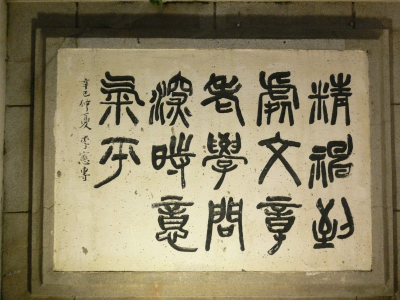 精神到
處文章
老學問
深時意
氣平
辛巳仲夏 李憲專